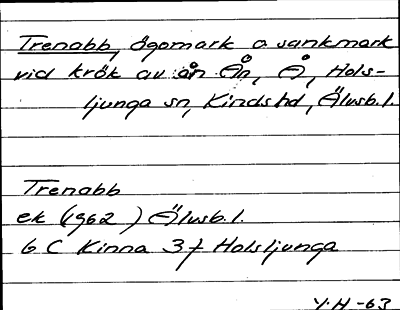 Trenabb, ögomark o sankmark
vid krök av ån Ån, Å, Hols-
ljunga sn, Kinds hd, Älvsb.l.
Trenabb
ek (1962) Älvsb.l.
6 C Kinna 3f Holsljunga
Y.H -63